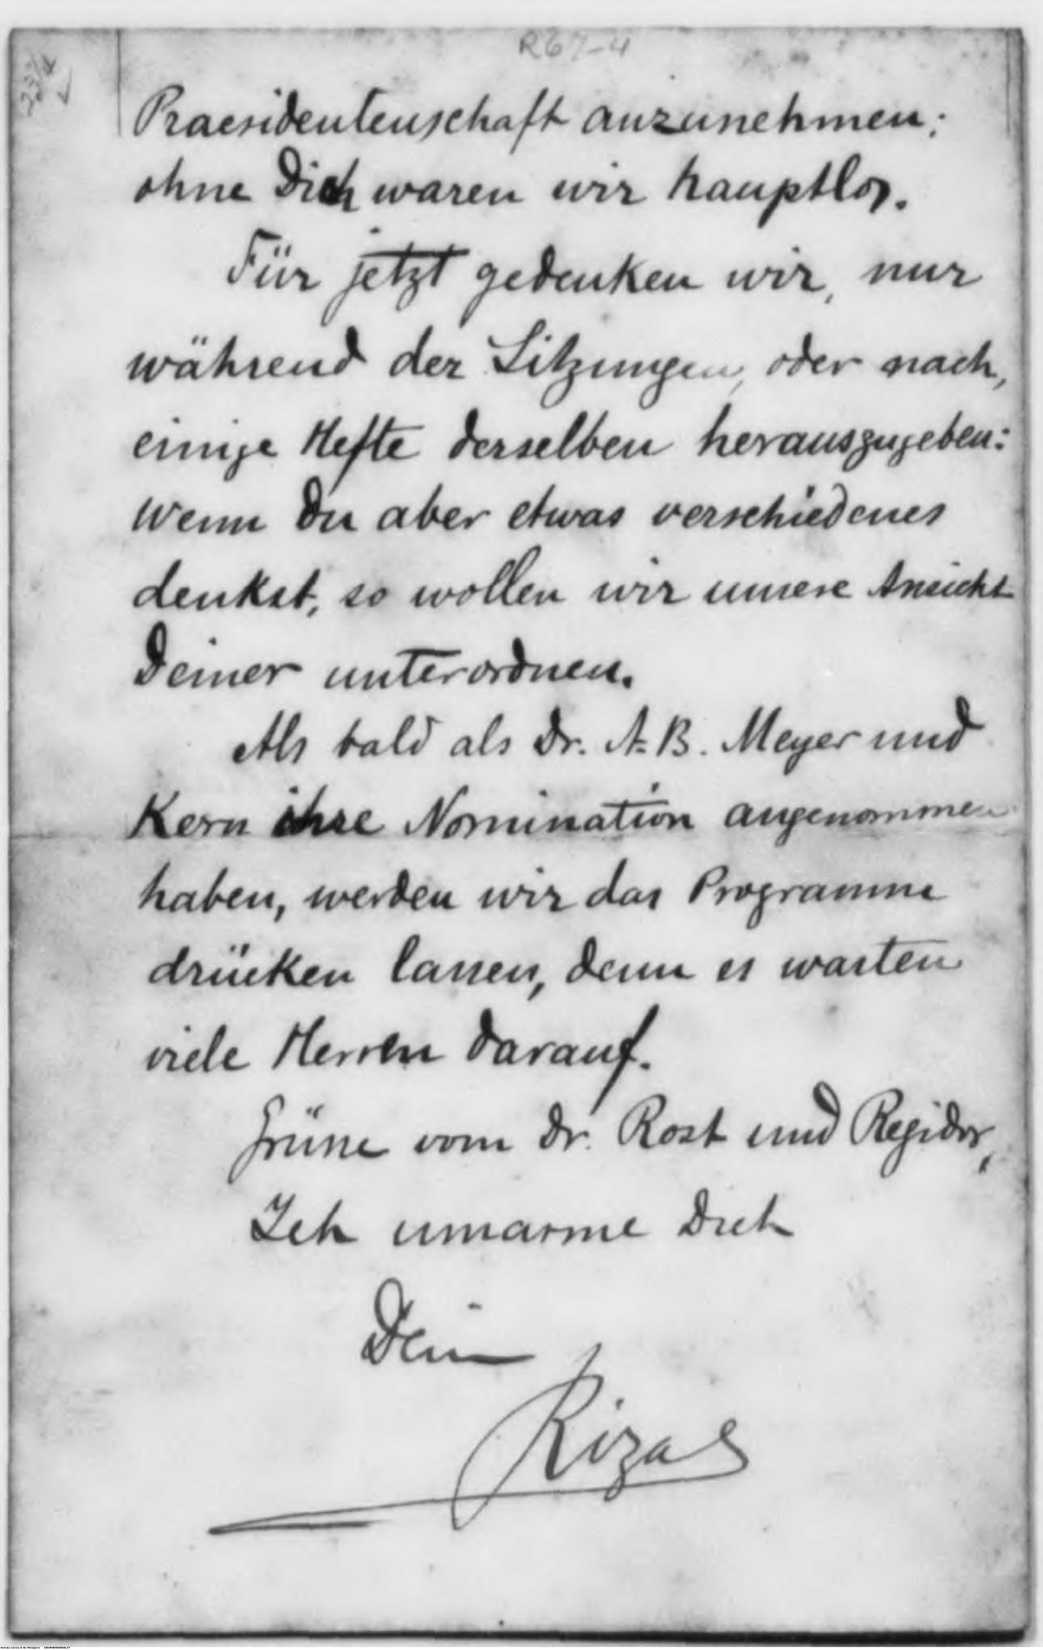 R67-4
Praesidentenschaft anzunehmen;
ohne Dich waren wir hauptlos.
Für jetzt gedenken wir, nur
während der Sitzungen, oder nach,
einige Hefte derselben herauszugeben:
Wenn Du aber etwas verschiedenes
denkst, so wollen wir unsere Ansicht
Deiner unterordnen.
Als bald als Dr. A. B. Meyer und
Kern ihre Nomination angenommen
haben, werden wir das Programm
drücken lassen, denn es warten
viele Herren darauf.
Grüsse vom Dr. Rost und Regidor,
Ich umarme Dich
Dein
Rizal